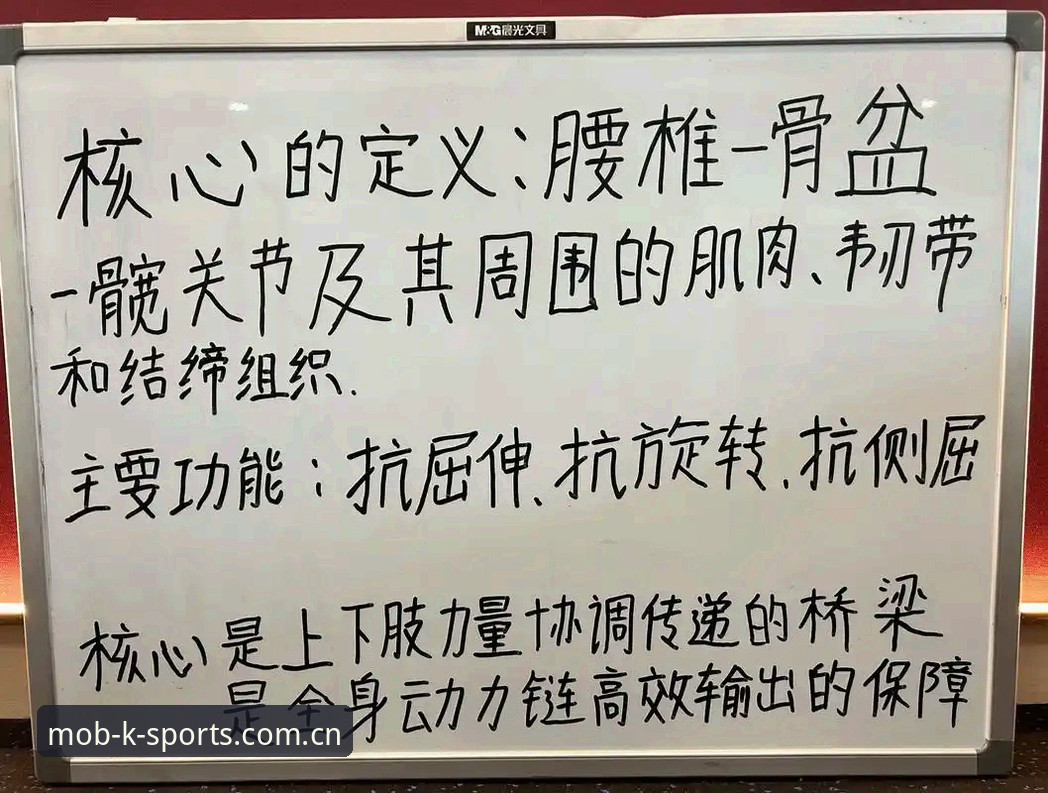 M&G晨光文具
核心的定义:腰椎-骨盆
-髋关节及其周围的肌肉、韧带
和结缔组织.
主要功能:抗屈伸、抗旋转、抗侧屈
核心是上下肢力量协调传递的桥梁
是全身动力链高效输出的保障
mob-k-sports.com.cn